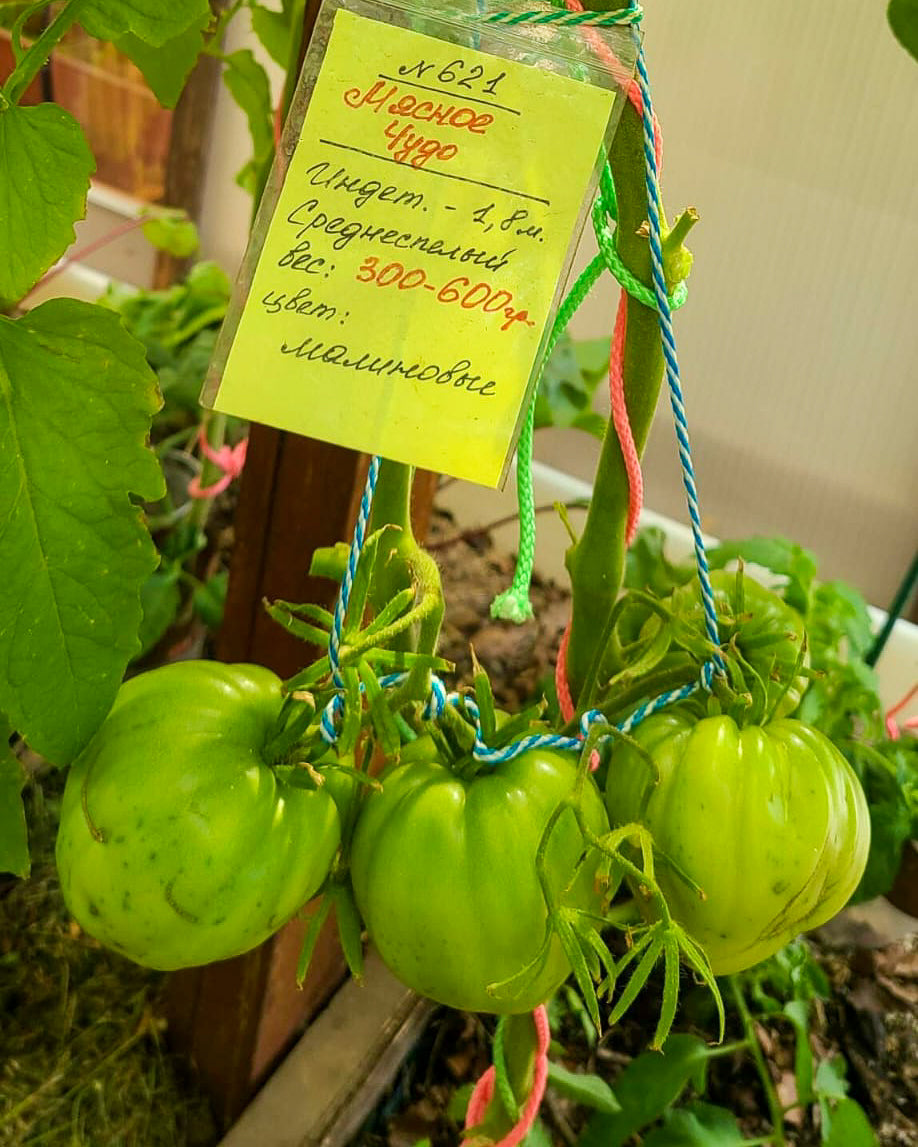 № 621
Мясное
Чудо
Индет. - 1,8 м.
Среднеспелый
вес: 300-600гр.
цвет:
малиновые